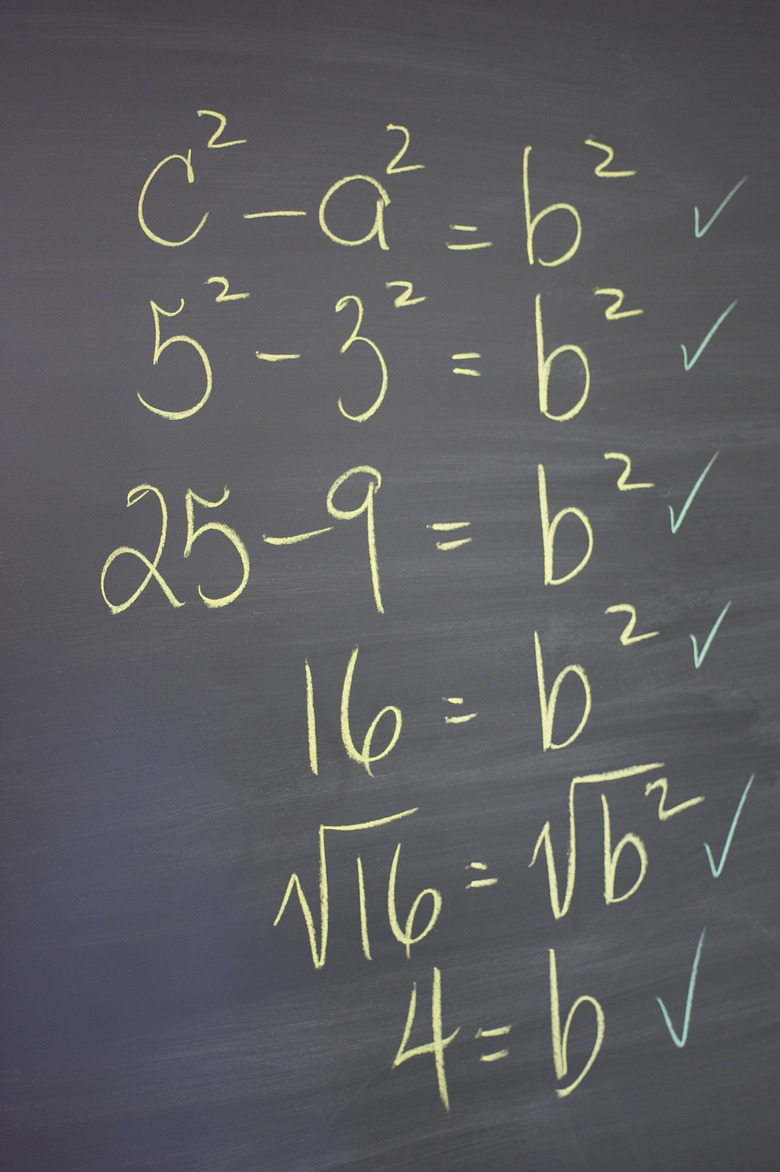 c² - a² = b² ✓
5² - 3² = b² ✓
25 - 9 = b² ✓
16 = b² ✓
√16 = √b² ✓
4 = b ✓